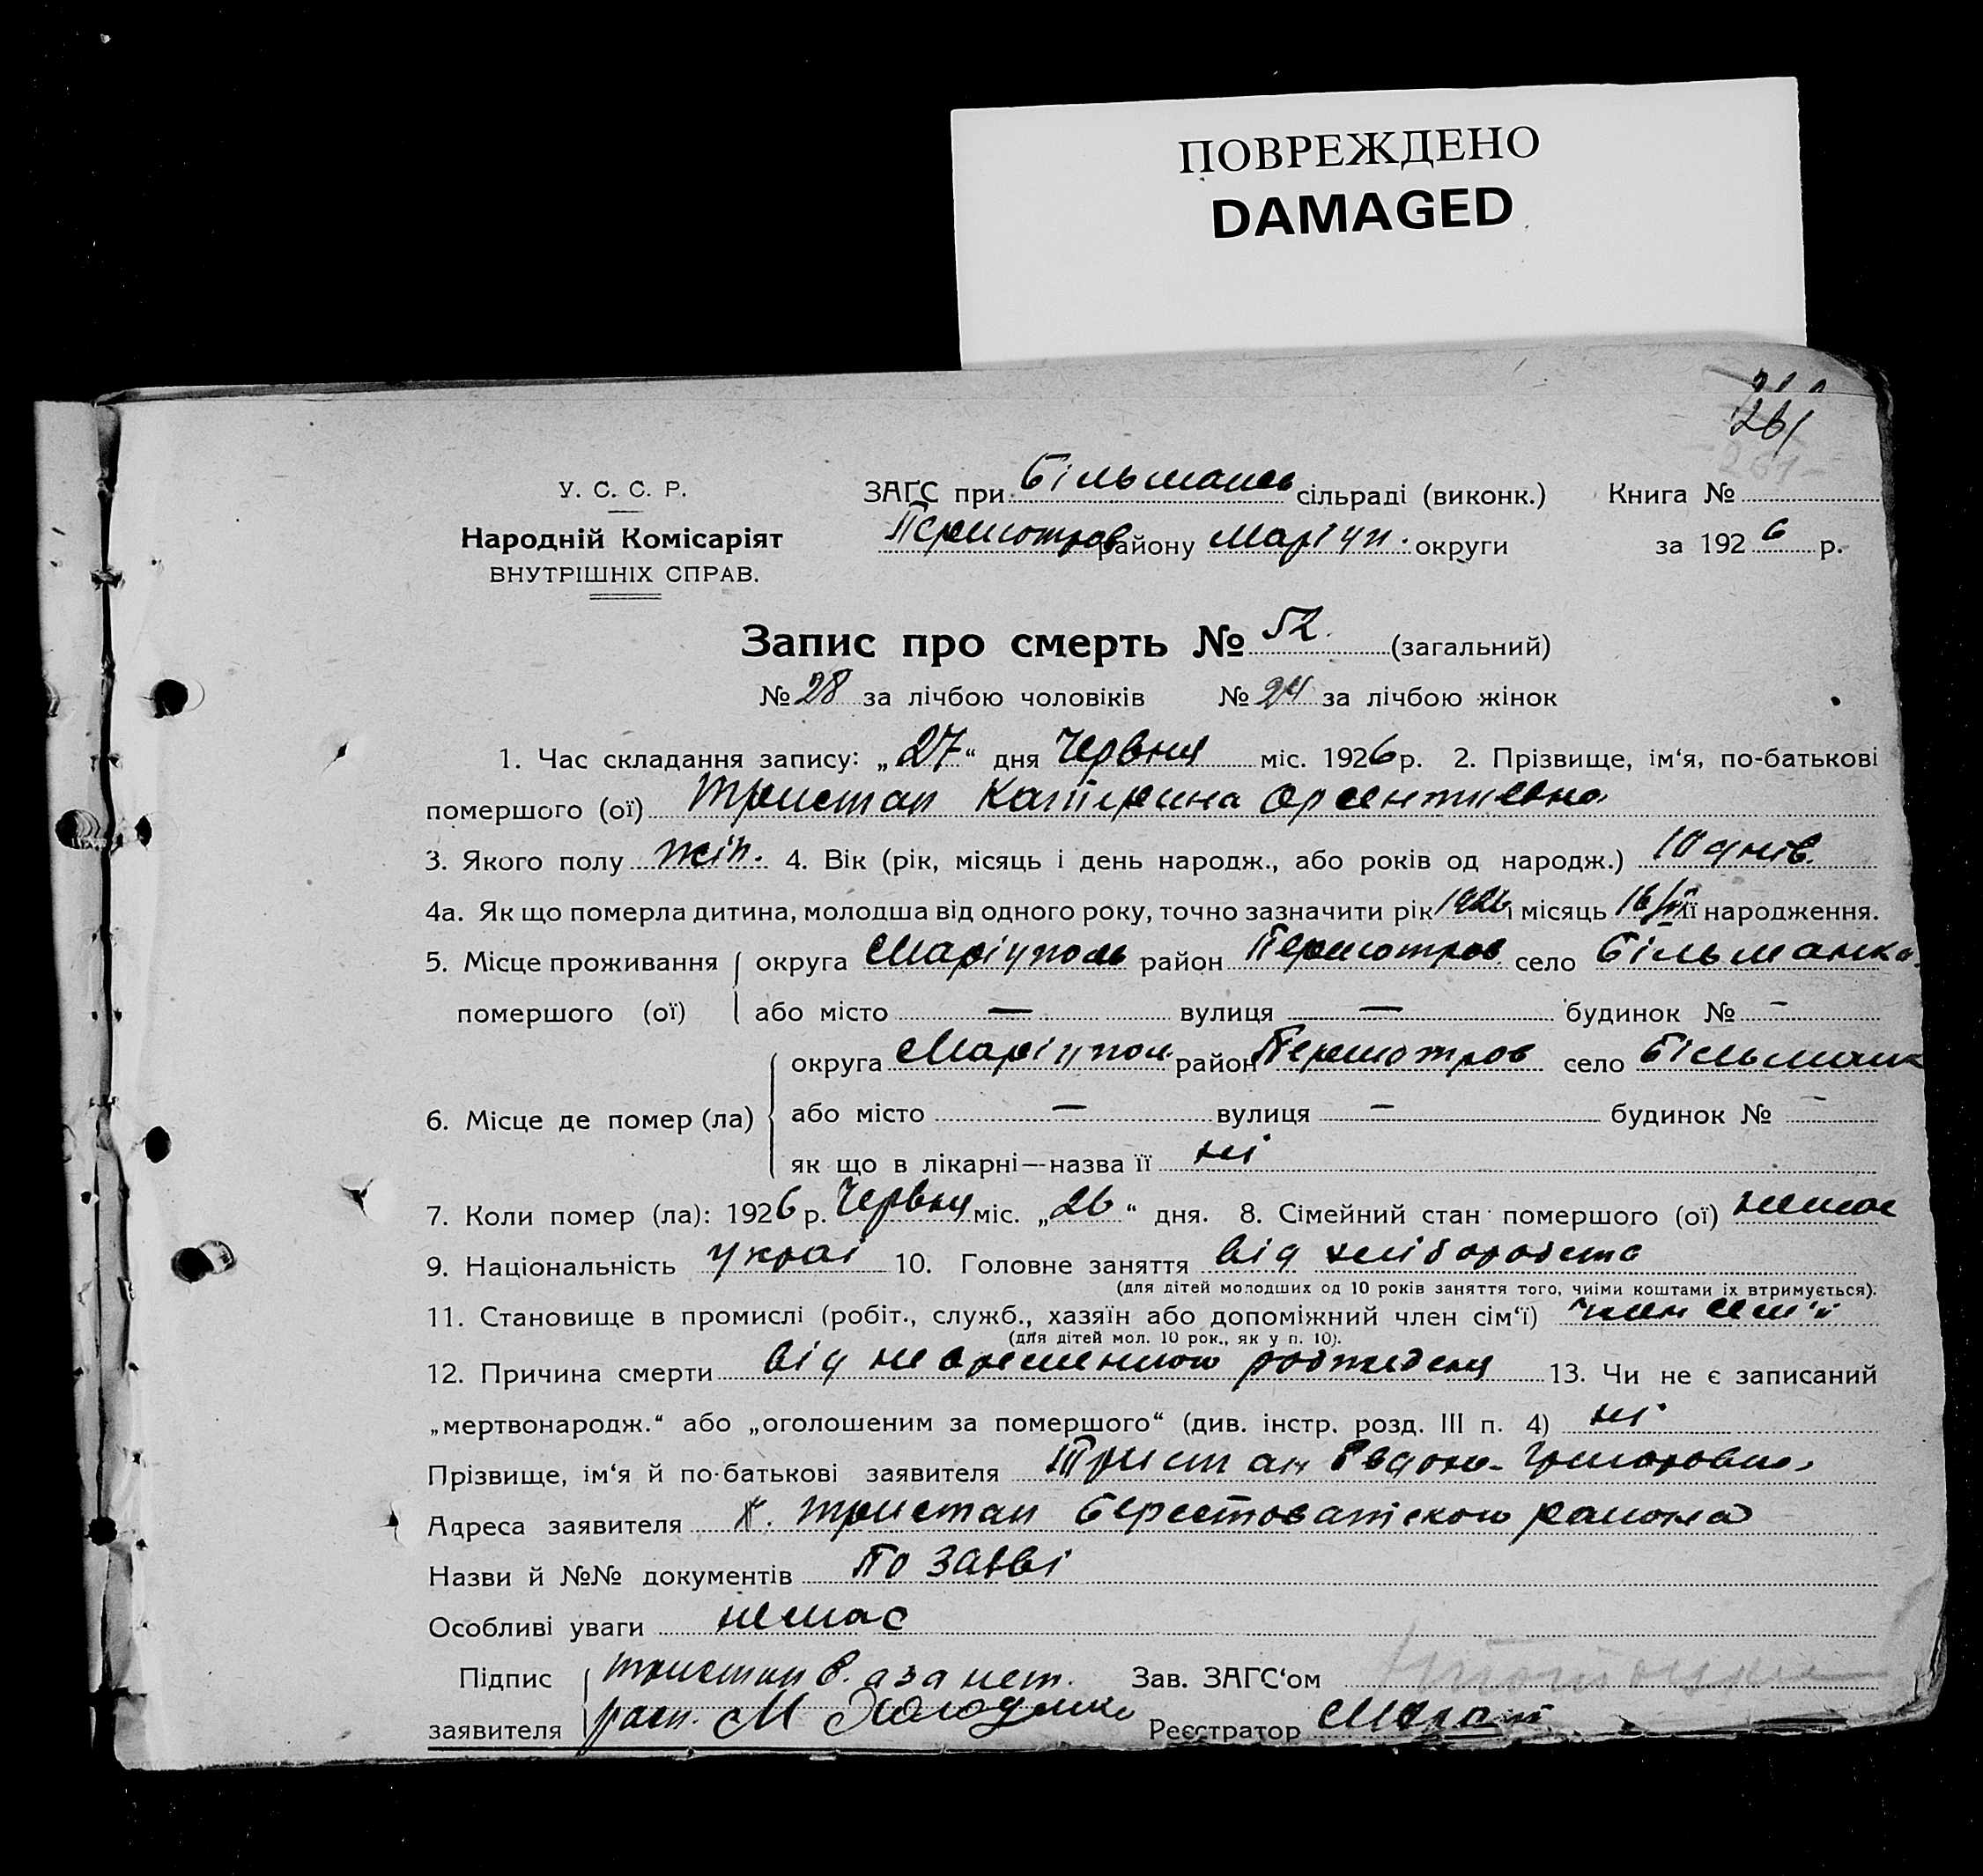 ПОВРЕЖДЕНО
DAMAGED
261
У. С. С. Р.
Народній Комісаріят
ВНУТРІШНІХ СПРАВ.
ЗАГС при Більманськ сільраді (виконк.) Книга №
Першотров району Маріуп. округи за 1926 р.
Запис про смерть № 52 (загальний)
№ 28 за лічбою чоловіків № 24 за лічбою жінок
1. Час складання запису: „27“ дня Червня міс. 1926 р. 2. Прізвище, ім‘я, по-батькові
помершого (ої) Тристан Катерина Арсентиевна
3. Якого полу жін. 4. Вік (рік, місяць і день народж., або років од народж.) 10 днів.
4а. Як що померла дитина, молодша від одного року, точно зазначити рік 1926 і місяць 16/VI її народження.
5. Місце проживання помершого (ої) округа Маріуполь район Першотров село Більманка
або місто — вулиця — будинок № –
6. Місце де помер (ла) округа Маріупол район Першотров село Більманк
або місто — вулиця — будинок № —
як що в лікарні—назва її ні
7. Коли помер (ла): 1926 р. Червня міс. „26“ дня. 8. Сімейний стан помершого (ої) немає
9. Національність украі 10. Головне заняття від хліборобста
(для дітей молодших од 10 років заняття того, чиїми коштами їх втримується).
11. Становище в промислі (робіт., служб., хазяїн або допоміжний член сім‘ї) член сем'ї
(для дітей мол. 10 рок., як у п. 10).
12. Причина смерти від невременного рождения 13. Чи не є записаний
„мертвонародж.“ або „оголошеним за помершого“ (див. інстр. розд. III п. 4) ні
Прізвище, ім‘я й по-батькові заявителя Тристан Григоровна
Адреса заявителя х. Тристан Берестоватского района
Назви й №№ документів По заяві
Особливі уваги немає
Підпис заявителя Тристан а за нет. Зав. ЗАГС‘ом
расп. М Холодник Реєстратор